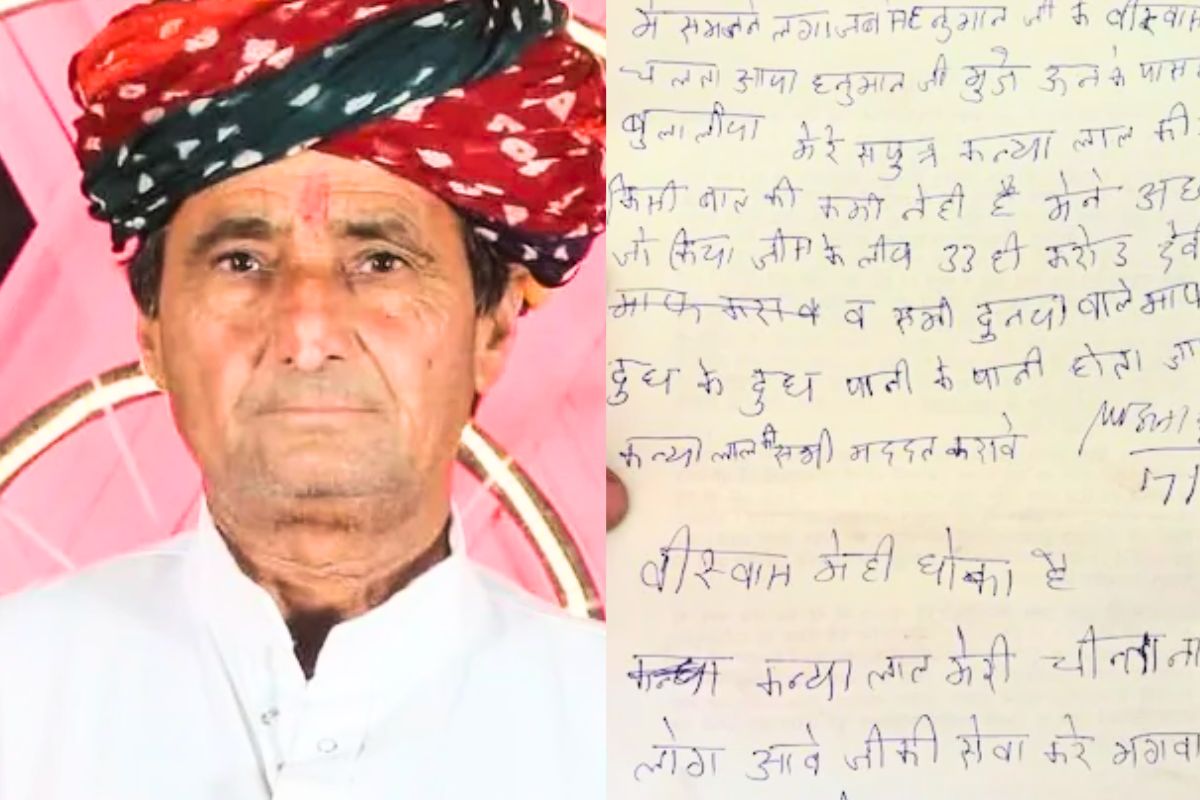 मे समजने लगा जब म हनुमान जी के वीस्वा
चलता आया हनुमान जी मुजे ऊन के पास
बुला लीया मेरे सपुत्र कन्या लाल की
किसी बात की कमी नेही है मेने अप
जो किया जीस के लीय 33 ही करोड देवी
माफ करावे व सभी दुनया वाले माफ
दुध के दुध पानी के पानी होता
कन्या लाल की सभी मददत करावे
17
वीस्वास मेही धोका है
कन्या कन्या लाल मेरी चीन्ता ना
लोग आवे जीकी सेवा करे भगवा